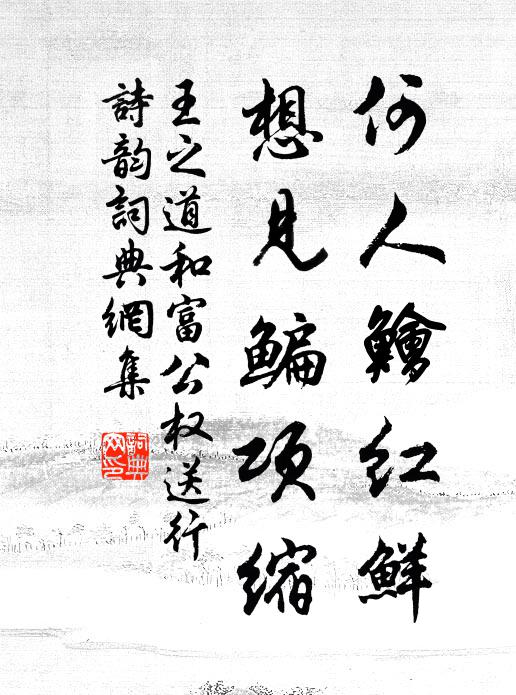 何人鱠红鮮
想見鳊项缩
王之道和富公权送行
詩韵詞典網集
詞典
网印